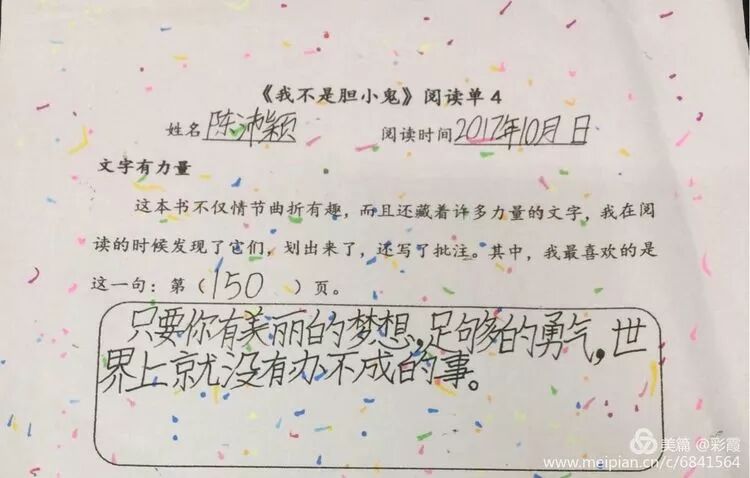 《我不是胆小鬼》阅读单 4
姓名 陈沛颖 阅读时间 2017年10月 日
文字有力量
这本书不仅情节曲折有趣，而且还藏着许多力量的文字，我在阅
读的时候发现了它们，划出来了，还写了批注。其中，我最喜欢的是
这一句：第（150）页。
只要你有美丽的梦想，足够的勇气，世
界上就没有办不成的事。
美篇 @彩霞
www.meipian.cn/c/6841564